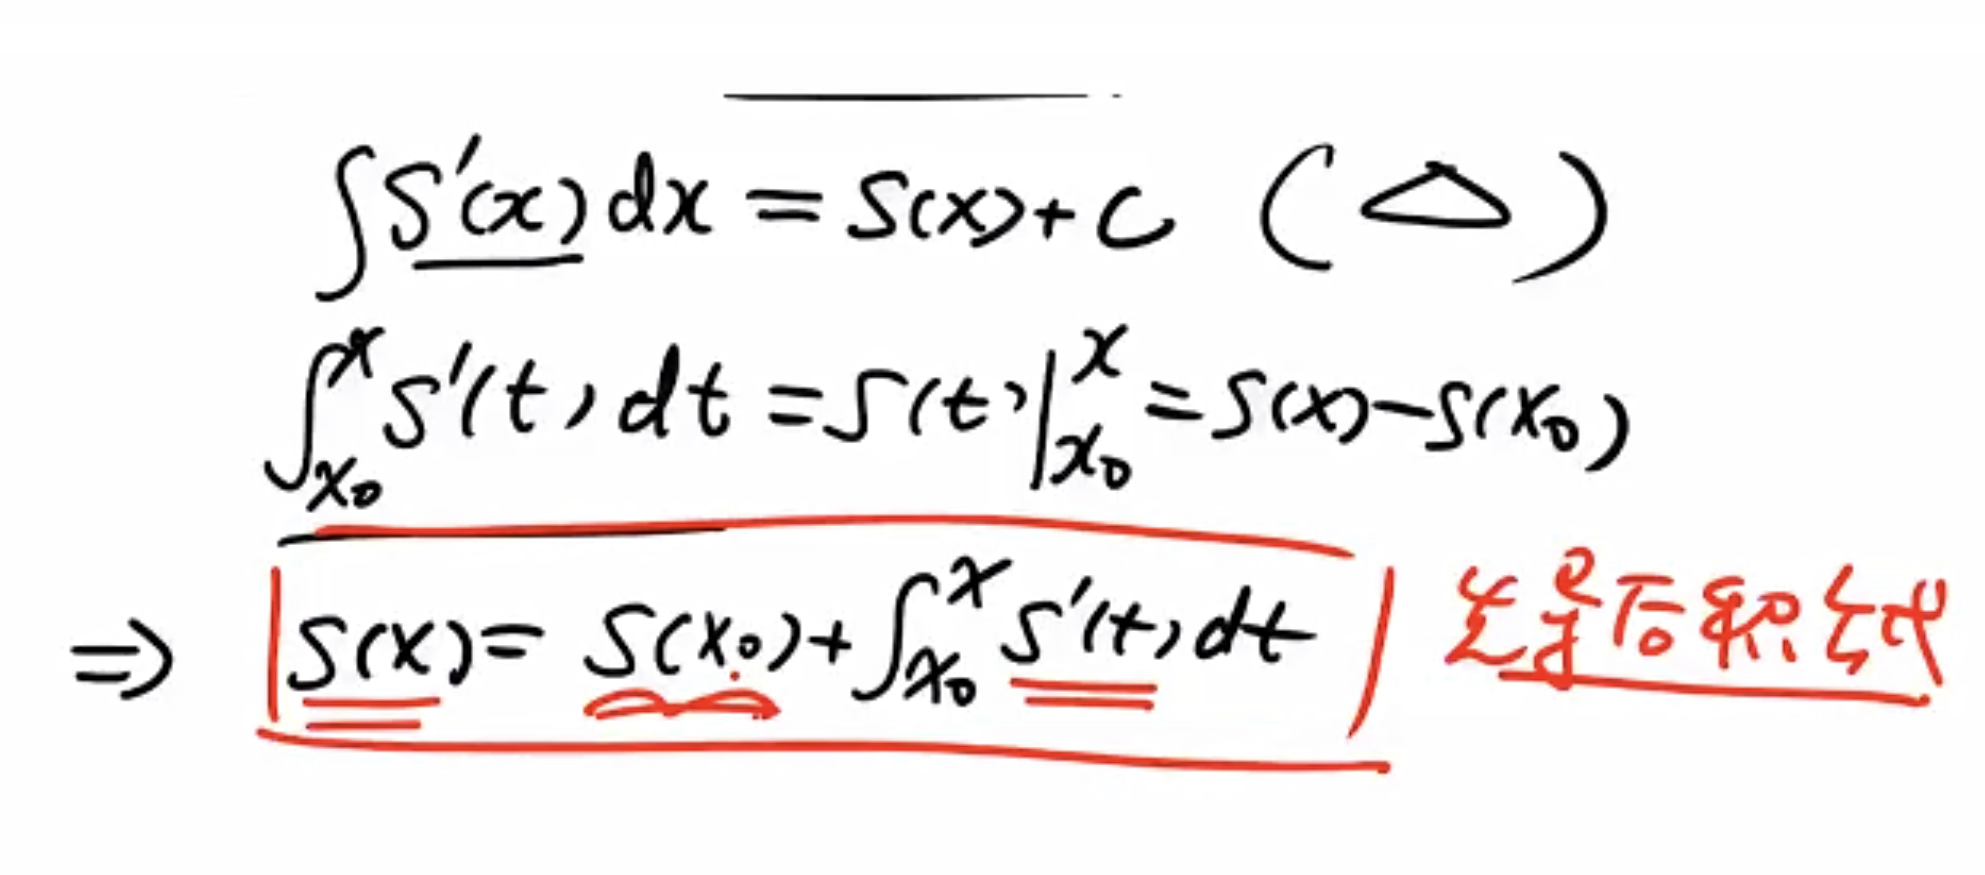 ∫S'(x)dx = S(x)+C (△)
∫_{x₀}^{x} S'(t)dt = S(t)|_{x₀}^{x} = S(x)-S(x₀)
⇒ S(x) = S(x₀)+∫_{x₀}^{x} S'(t)dt 先导后积公式